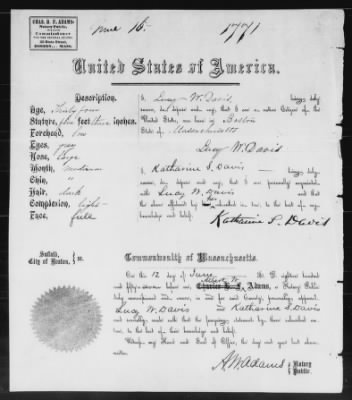 CHAS. B. F. ADAMS
Notary Public,
Commissioner
BOSTON, MASS.
June 16. 1771
United States of America.
Description.
Age, Thirty four
Stature, five feet three inches.
Forehead, low
Eyes, gray
Nose, large
Mouth, medium
Chin, "
Hair, dark
Complexion, light
Face, full
I, Lucy W. Davis being duly
sworn, do depose and say, that I am a native Citizen of the
United States, was born in Boston
State of Massachusetts
Lucy W. Davis
I, Katharine S. Davis being duly
sworn, depose and say, that I am personally acquainted
with Lucy W. Davis and that
the above statement by her is true, to the best of my
knowledge and belief.
Katharine S. Davis
Suffolk,
City of Boston, } ss.
Commonwealth of Massachusetts.
On the 12 day of June A. D. eighteen hundred
and fifty-seven before me, Albert W. Adams, a Notary Public
duly commissioned and sworn, in and for said County, personally appeared
Lucy W. Davis and Katharine S. Davis
and severally made oath that the foregoing statement by them subscribed is
true, to the best of their knowledge and belief.
Witness, my Hand and Seal of Office, the day and year last above
written.
A. W. Adams { Notary
Public.